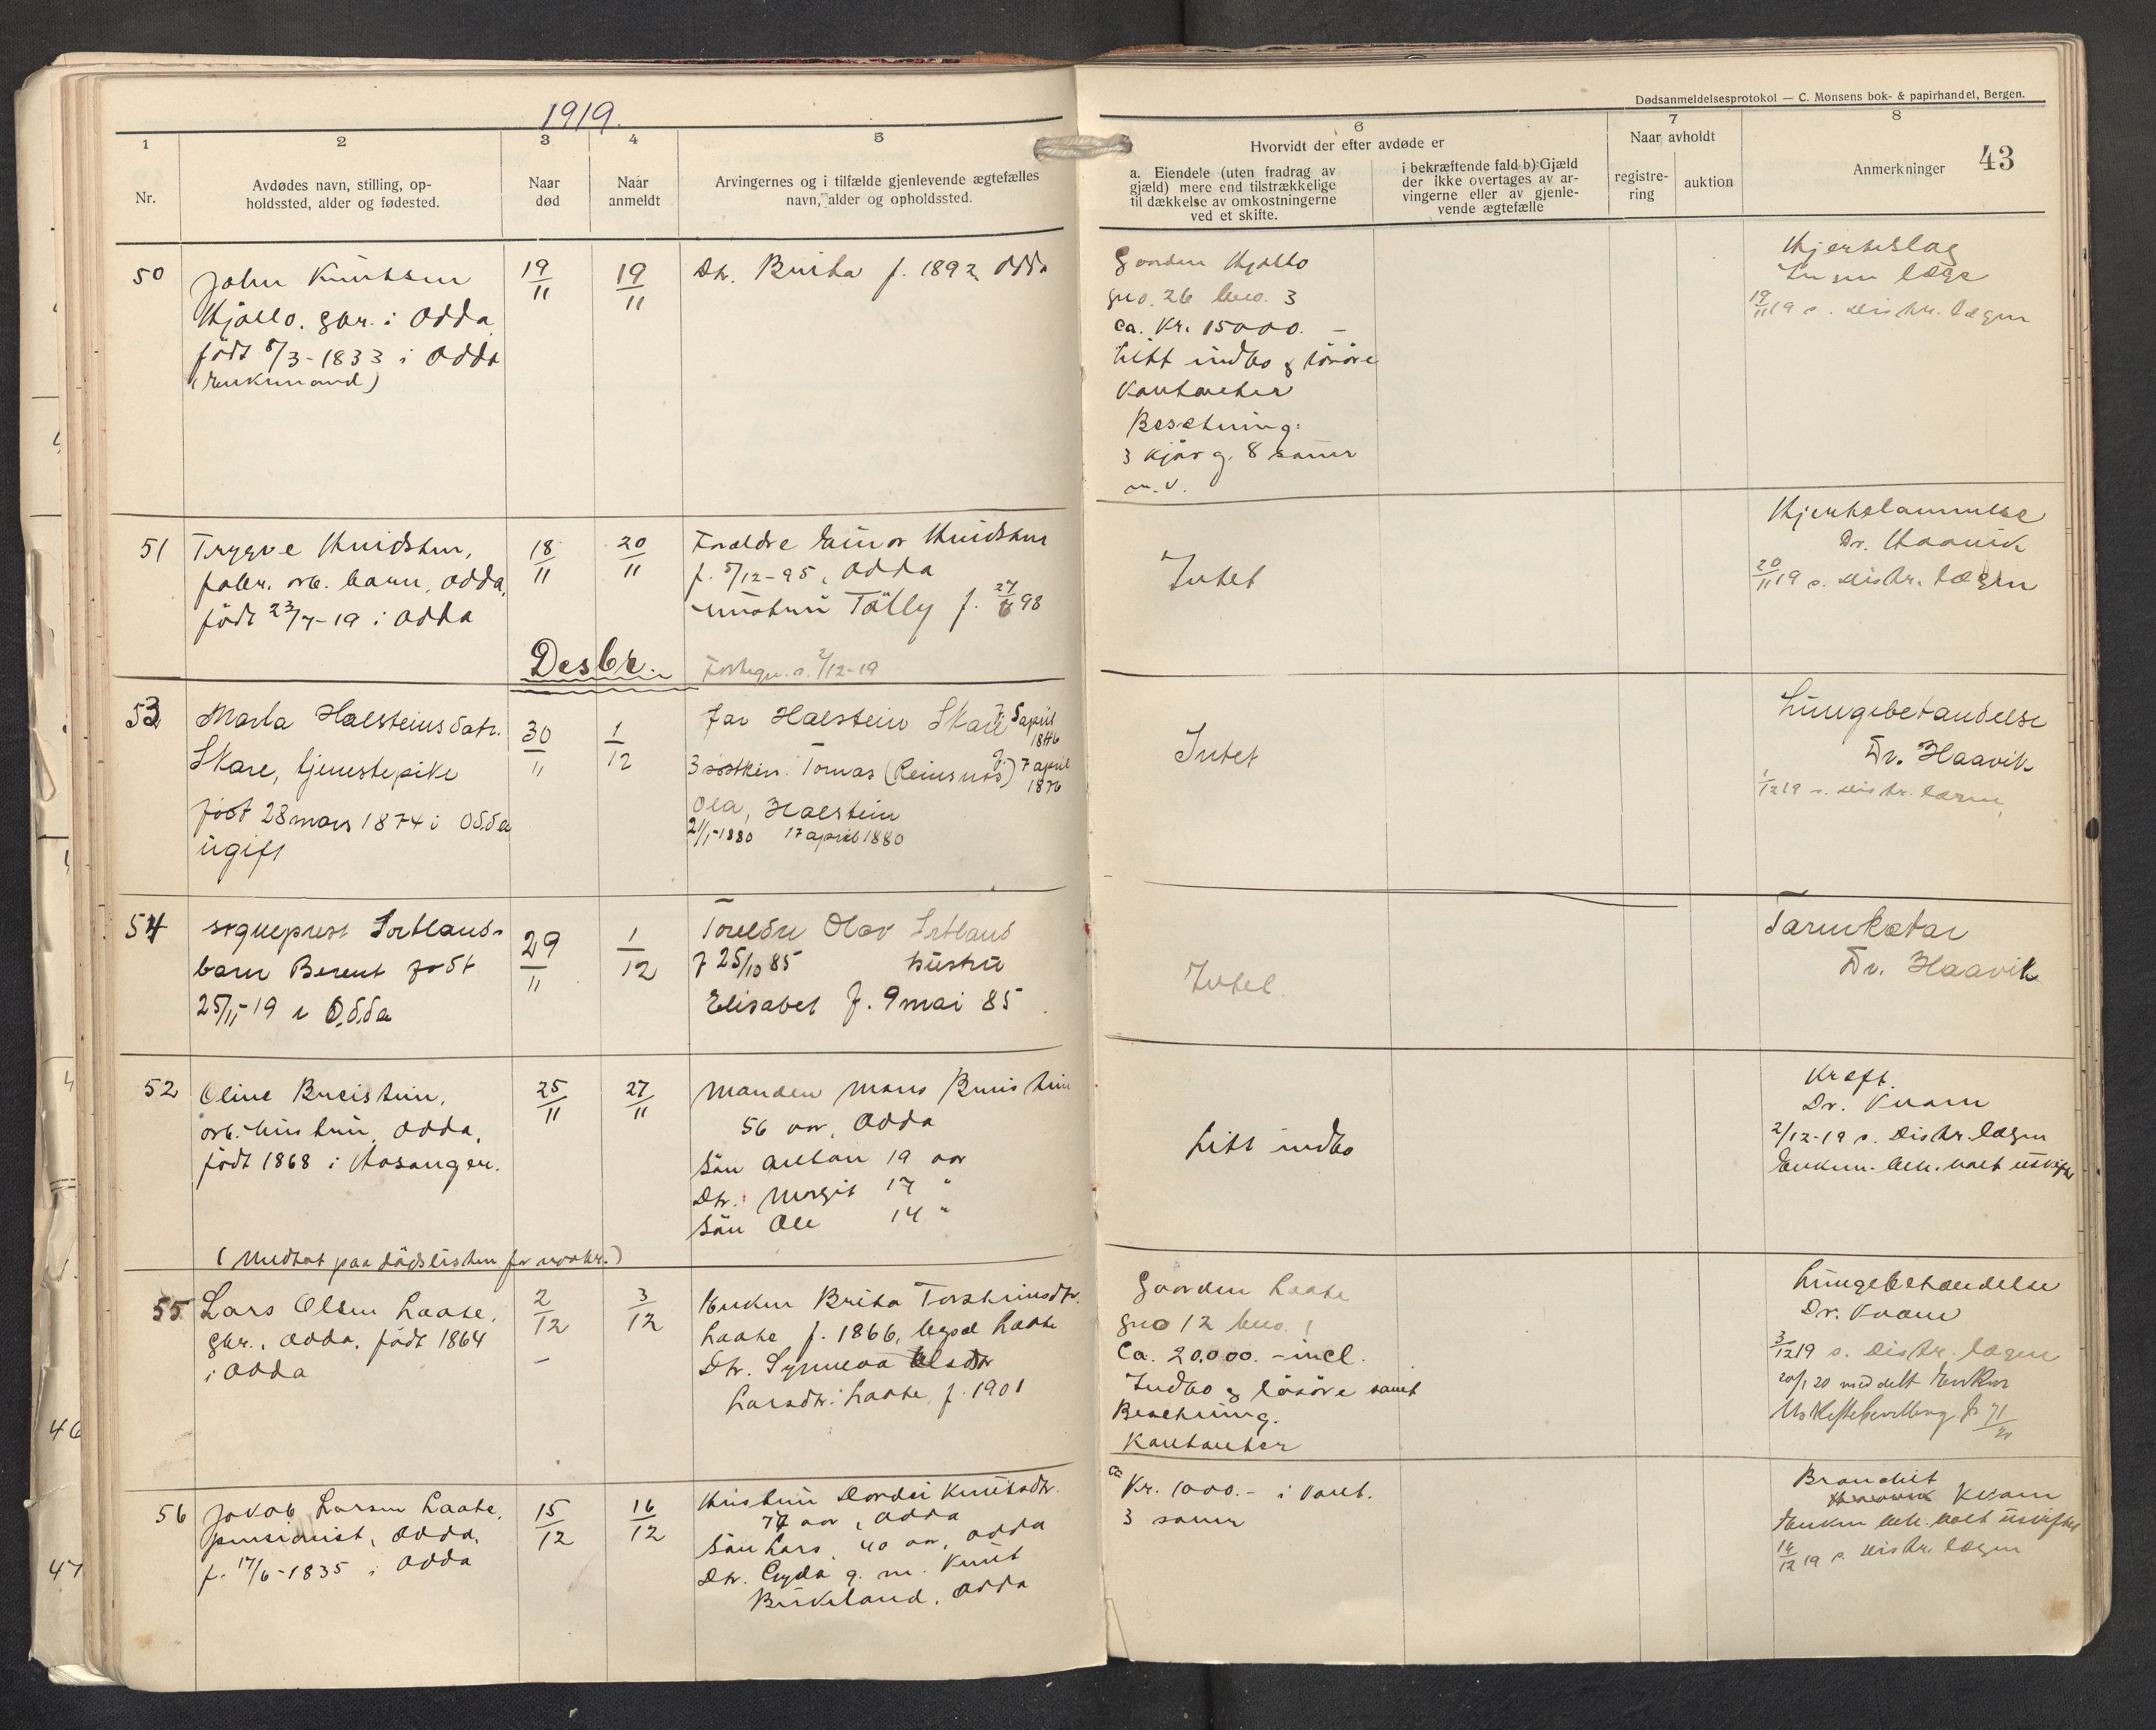 1919.
Dødsanmeldelsesprotokol — C. Monsens bok- & papirhandel, Bergen.
43
1 2 3 4 5 6 7 8
Nr.
Avdødes navn, stilling, op-
holdssted, alder og fødested.
Naar
død
Naar
anmeldt
Arvingernes og i tilfælde gjenlevende ægtefælles
navn, alder og opholdssted.
Hvorvidt der efter avdøde er
a. Eiendele (uten fradrag av
gjæld) mere end tilstrækkelige
til dækkelse av omkostningerne
ved et skifte.
i bekræftende fald b) Gjæld
der ikke overtages av ar-
vingerne eller av gjenle-
vende ægtefælle
Naar avholdt
registre-
ring
auktion
Anmerkninger
50
John Knutsen
Hjøllo, gbr. i Odda
født 8/3-1833 i Odda
(Enkemand)
19/11
19/11
Dtr. Brita f. 1892 Odda
Gaarden Hjøllo
gno. 26 bno. 3
ca. Kr. 15000. –
Litt indbo & løsøre
Kontanter
Besetning:
3 kjør g. 8 sauer
m. v.
Hjerteslag
Ingen læge
19/11 19 s. distr. lægen
51
Trygve Knudsen,
fabr. arb. barn, Odda,
født 23/7-19 i Odda
18/11
20/11
Forældre Einar Knudsen
f. 5/12-95, Odda
hustru Tølly f. 27/6 98
Intet
Hjertelammelse
Dr. Haavik
20/11 19 s. distr. lægen
Desbr.
2/12-19
53
Marta Halsteinsdatr.
Skare, tjenestepike
født 28 mars 1874 i Odda
ugift
30/11
1/12
Far Halstein Skare f. 5 april
1846
3 søsken: Tomas (Reinsnos) f. 7 april
1876
Ola, Halstein
21/1-1880 17 april 1880
Intet
Lungebetændelse
Dr. Haavik
1/12 19 s. distr. lægen
54
sogneprest Sørtlands
barn Berent født
25/11-19 i Odda
29/11
1/12
Foreldre Olav Sørtland
f 25/10 85 hustru
Elisabet f. 9 mai 85
Intet
Tarmkatar
Dr. Haavik
52
Oline Bueistein,
arb. hustru, Odda,
født 1868 i Aasanger.
25/11
27/11
Manden Mons
56 aar, Odda
Søn Anton 19 aar
Dtr. Margit 17 "
Søn Ole 14 "
(Medtat paa dødslisten for novbr.)
Litt indbo
Kreft.
Dr. Kvam
2/12-19 s. Distr. lægen
Enkem. beh. boet uskiftet
55
Lars Olsen Laate,
gbr., Odda, født 1864
i Odda
2/12
3/12
Enken Brita Torsteinsdtr.
Laate f. 1866, bopæl Laate
Dtr. Synneva
Larsdtr. Laate, f. 1901
Gaarden Laate
gno 12 bno. 1
Ca. 20,000. – incl.
Indbo & løsøre samt
Besetning.
Kontanter
Lungebetændelse
Dr. Kvam
3/12 19 s. distr. lægen
20/1 20 meddelt Enken
Uskiftebevilling
56
Jakob Larsen Laate,
pensionist, Odda,
f. 17/6-1835 i Odda
15/12
16/12
Hustru Dordei Knutsdtr.
74 aar, Odda
Søn Lars, 40 aar, Odda
Dtr. Gyda g. m. Knut
Birkeland, Odda
ca Kr. 1000.– i kont.
3 sauer
Bronchit
Kvam
Enken beh. boet uskiftet
16/12 19 s. distr. lægen
46
47